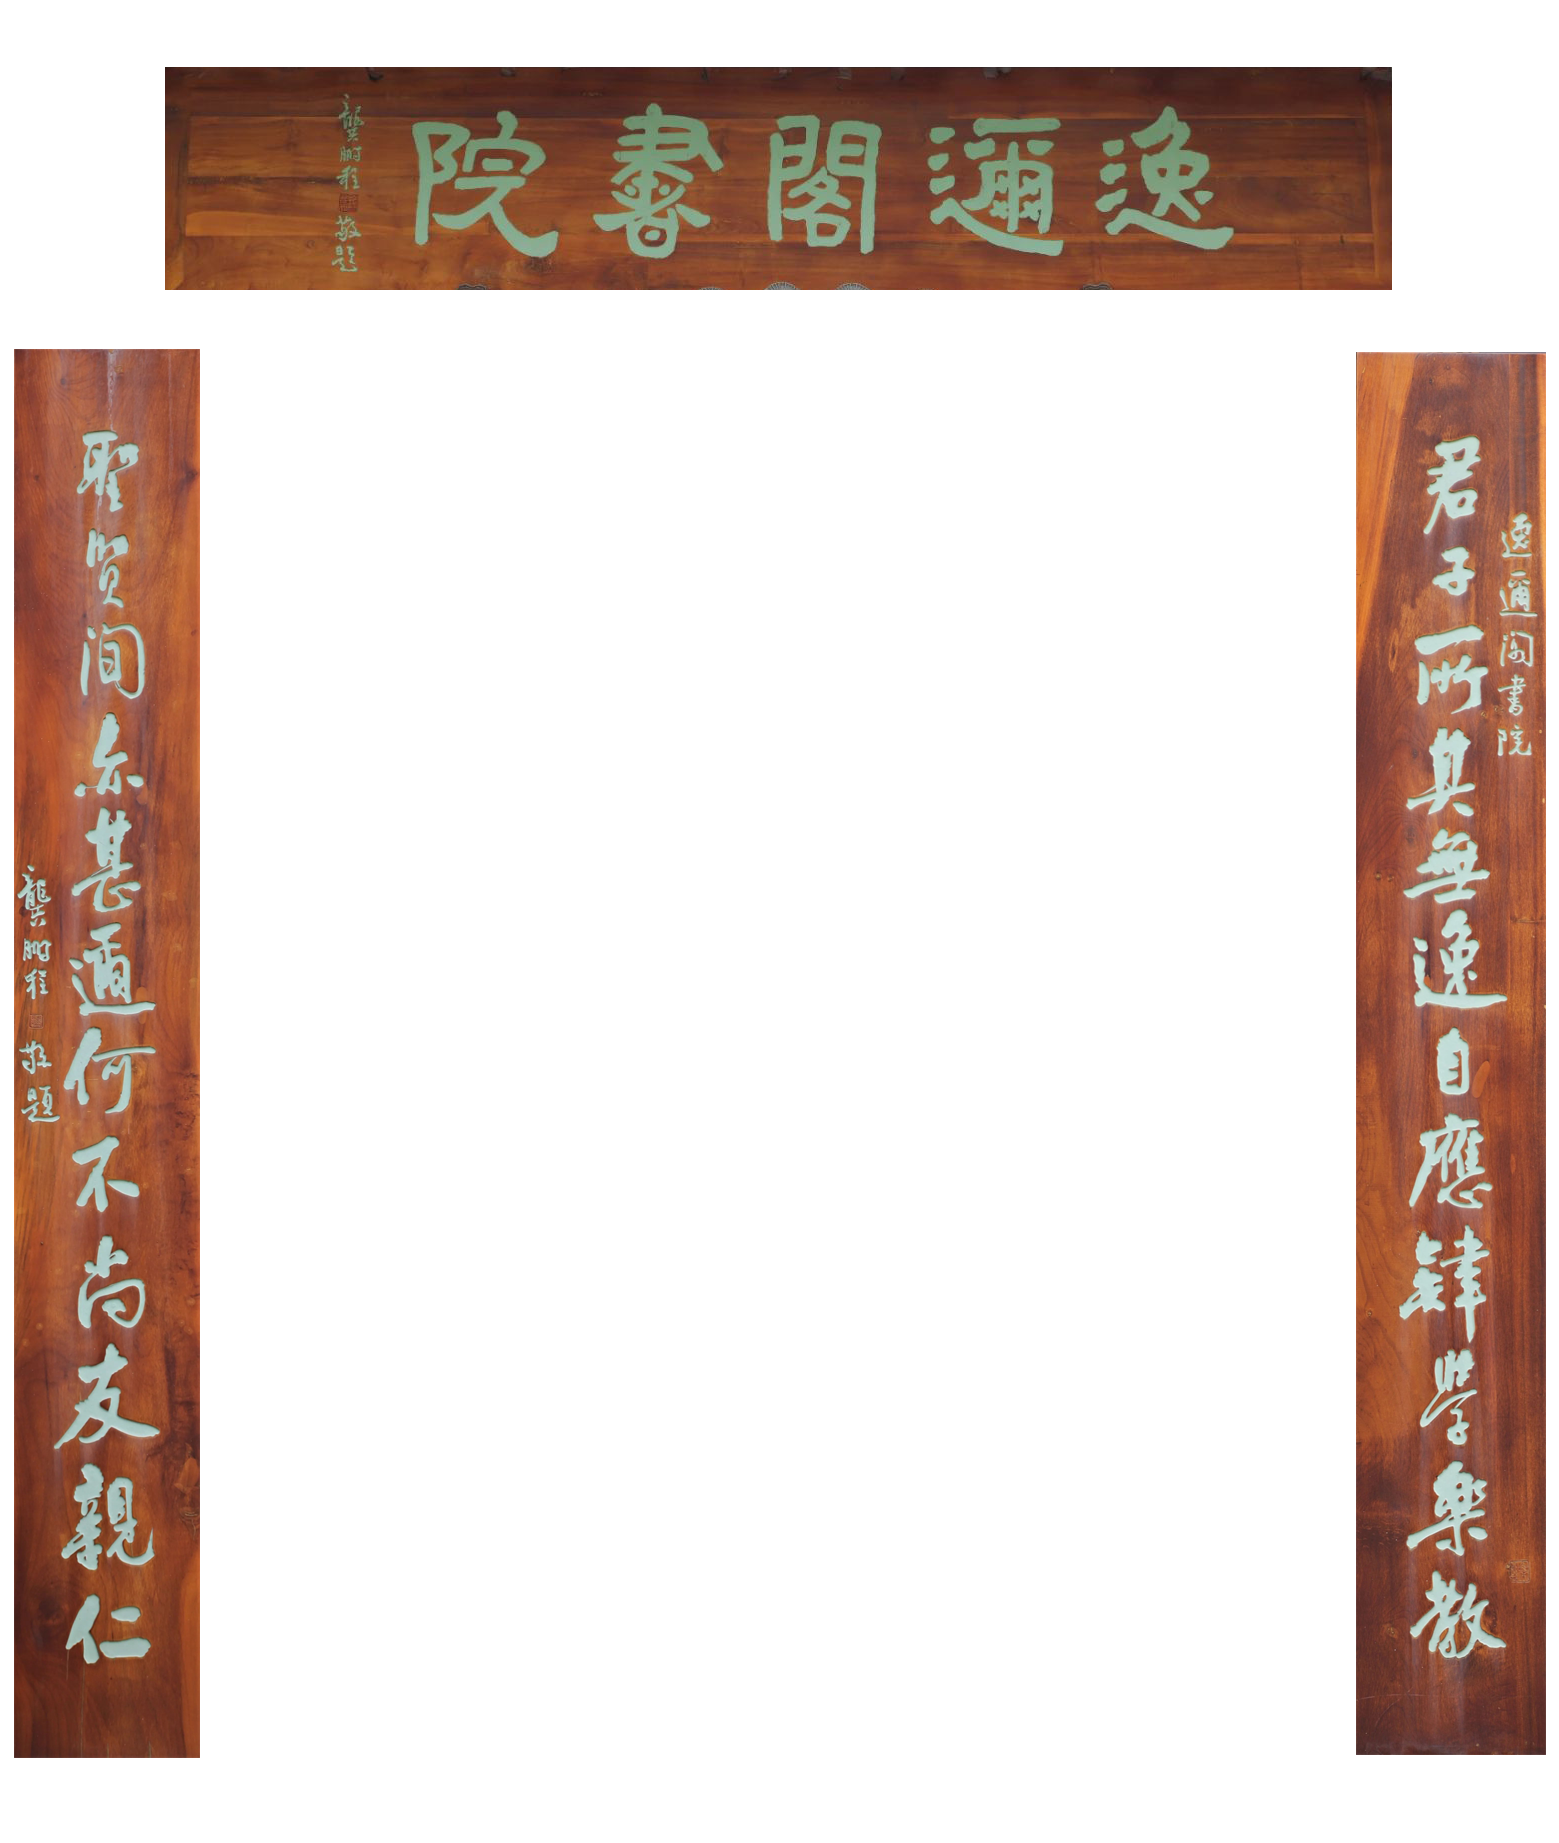 逸邇閣書院
龔鵬程
敬題
逸邇閣書院
君子所其無逸自應肆學樂教
聖賢間亦甚邇何不尚友親仁
龔鵬程
敬題